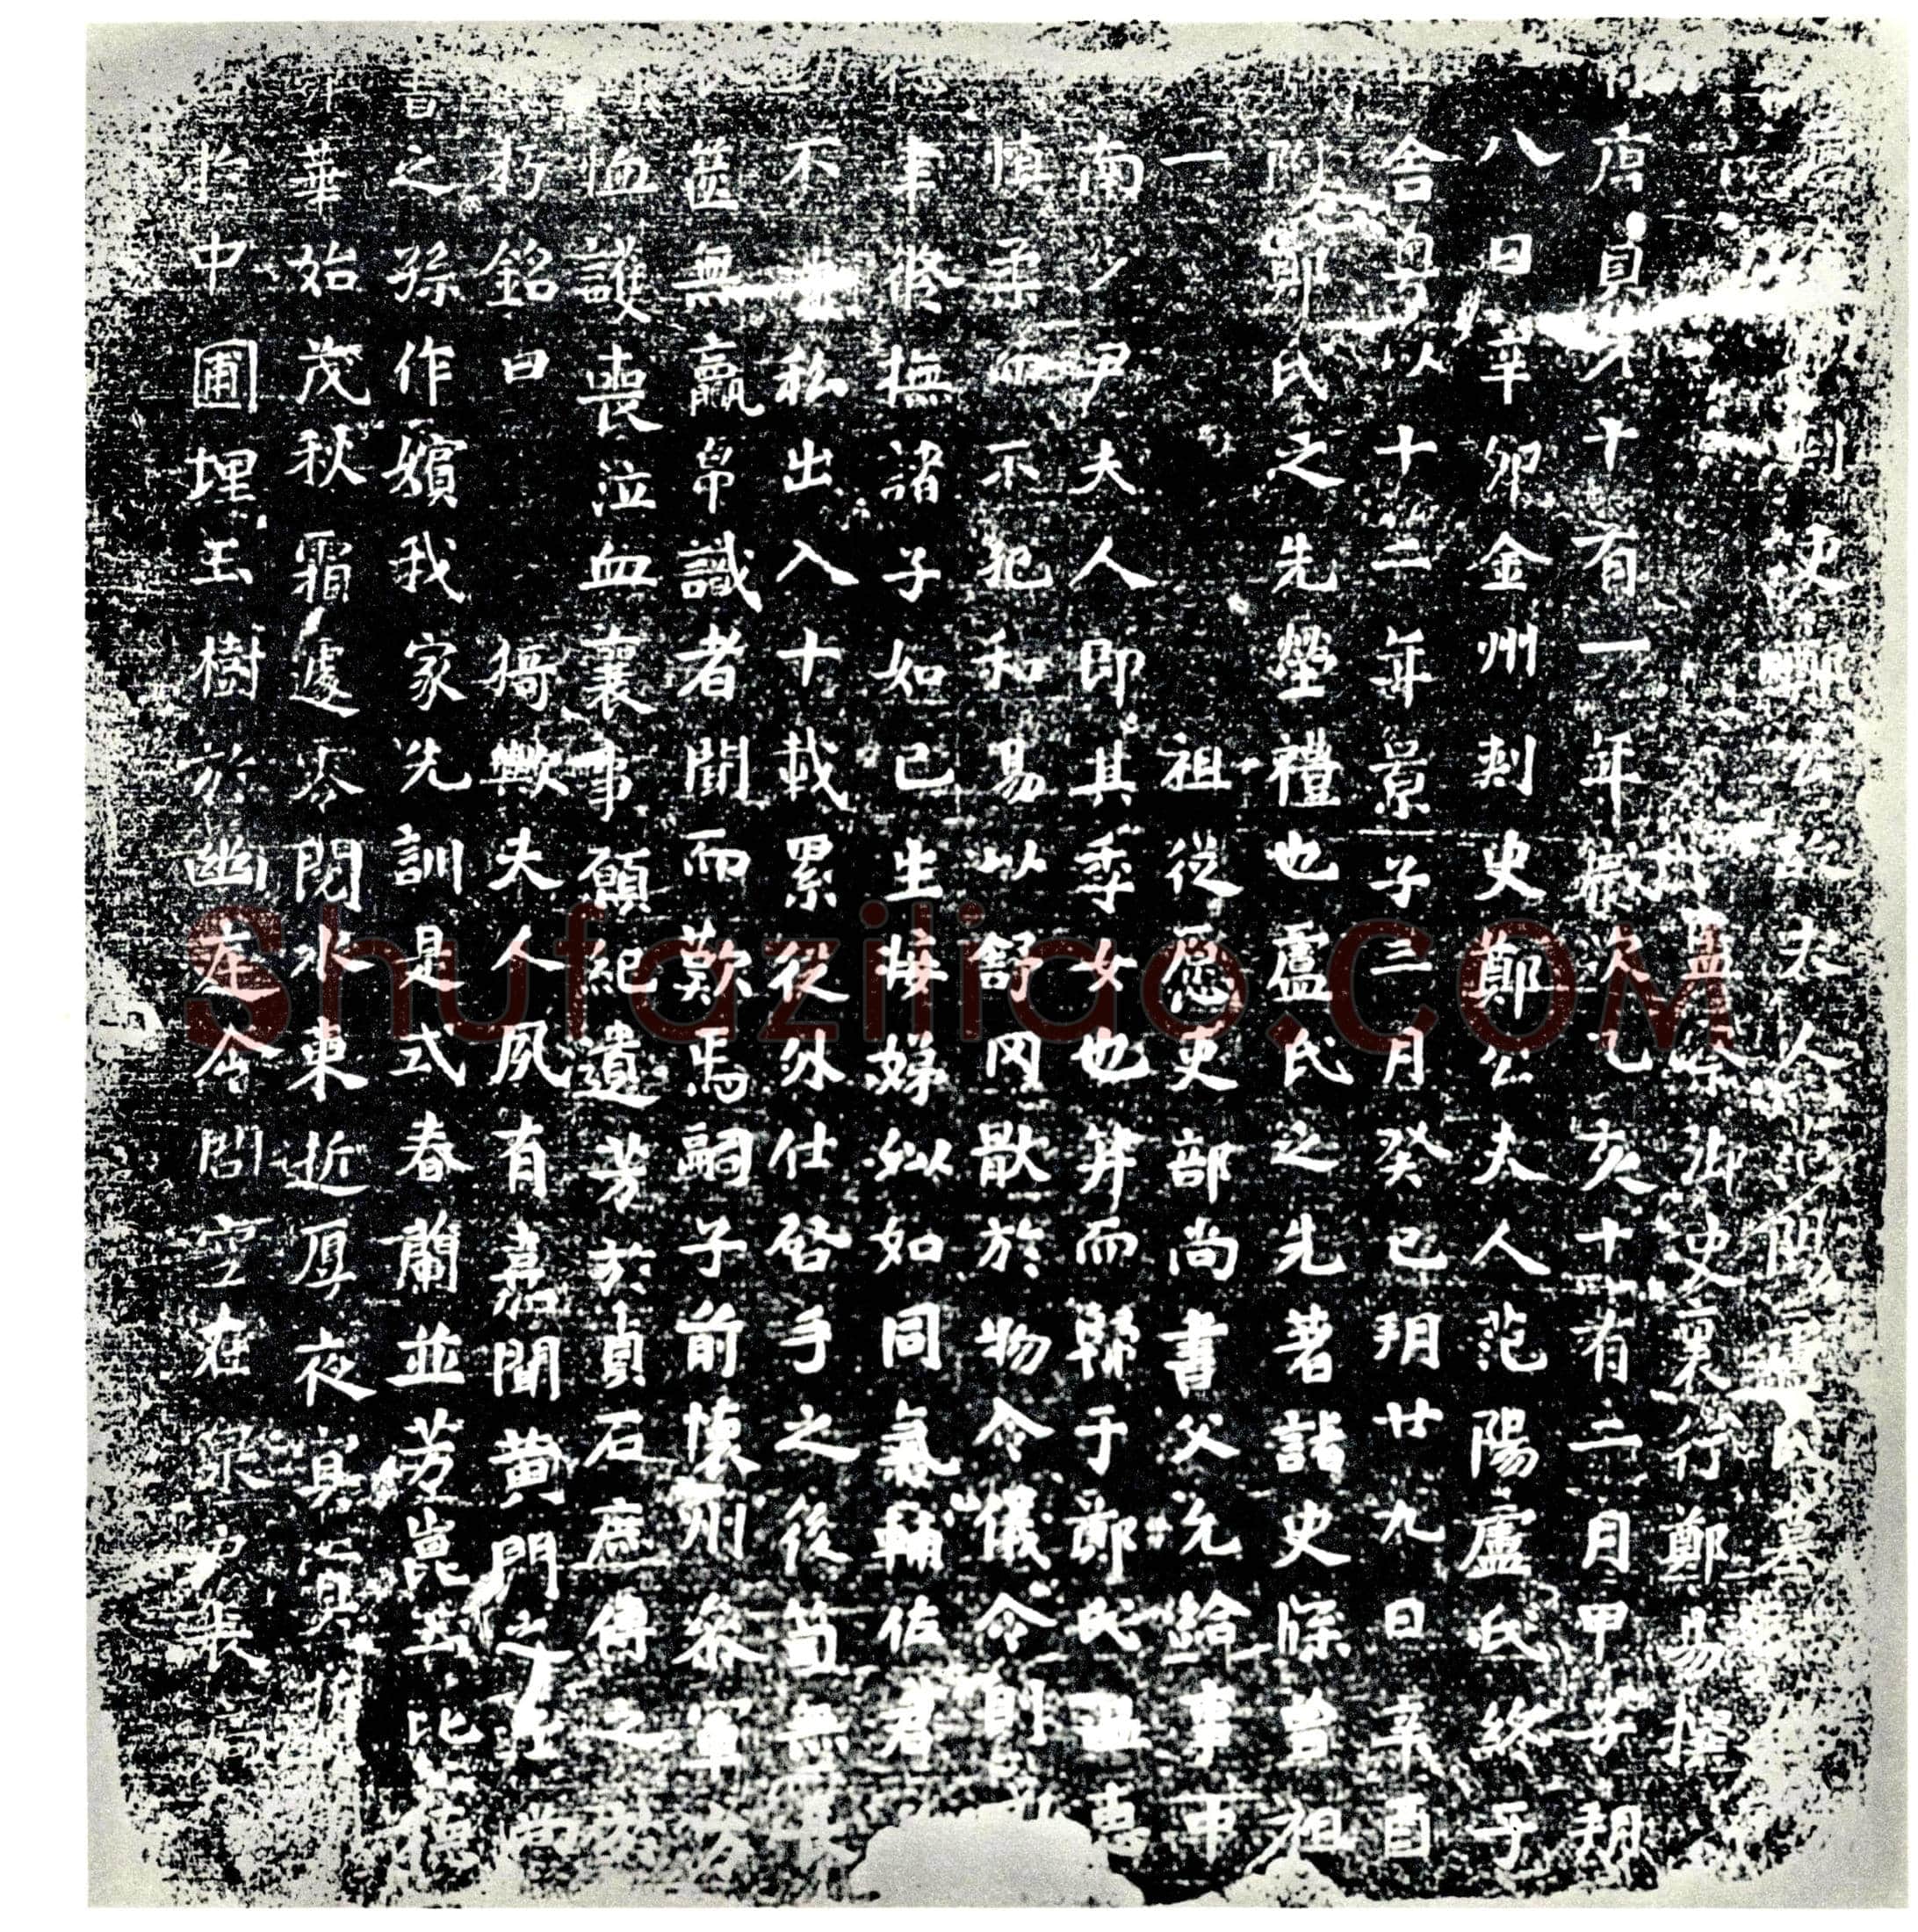 州刺史鄭公故夫人范陽盧氏墓
監察御史裏行鄭易撰
唐貞十有一年歲次乙亥十有二月甲子朔
八日辛卯金州刺史鄭公夫人范陽盧氏終于
舍粵以十二年景子三月癸巳朔廿九日辛酉
附鄭氏之先塋禮也盧氏之先著諸史諜皆祖
一祖從愿吏部尚書父允給事中
南尹夫人即其季女也笄而歸于鄭氏溫惠
慎柔而不犯和易以舒冈歆於物令儀令則
年脩撫諸子如己生接娣姒如同氣輔佐君
不私出入十載累從外仕啓手之後笥無
篋無贏帛識者聞而歎焉嗣子前懷州參軍方
恤護喪泣血襄事願紀遺芳於貞石庶傳之
朽銘曰猗歟夫人夙有嘉聞黃門之尚
之孫作嬪我家先訓是式春蘭並芳崑玉比德
華始茂秋霜遽零閱水東逝厚夜冥寞
於中圃埋玉樹於幽庭令問空在泉戶
Shufaziliao.COM